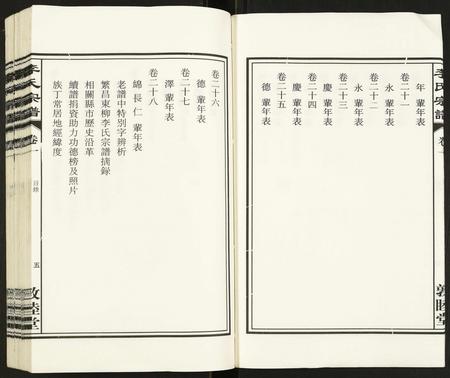 李氏宗譜
卷一
年 輩年表
卷二十一
永 輩年表
卷二十二
永 輩年表
卷二十三
慶 輩年表
卷二十四
慶 輩年表
卷二十五
德 輩年表
敦睦堂
卷二十六
德 輩年表
卷二十七
澤 輩年表
卷二十八
綿 長 仁 輩年表
老譜中特別字辨析
繁昌東柳李氏宗譜摘録
相關縣市歷史沿革
續譜捐資助力功德榜及照片
族丁常居地經緯度
李氏宗譜
卷一
目錄
五
敦睦堂